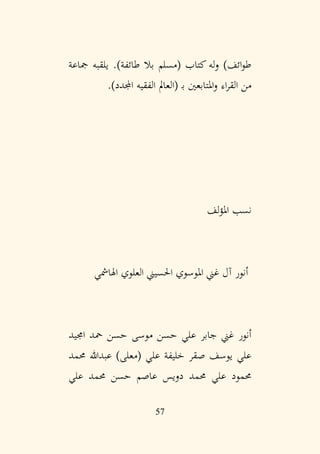 طوائف) وله كتاب (مسلم بلا طائفة). يلقبه جماعة
من القراء والمتابعين بـ (العالم الفقيه المجدد).
نسب المؤلف
أنور آل غني الموسوي الحسيني العلوي الهاشمي
أنور غني جابر علي حسن موسى حسن حمد امجيد
علي يوسف صقر خليفة علي (معلى) عبدالله محمد
محمود علي محمد دويس عاصم حسن محمد علي
57